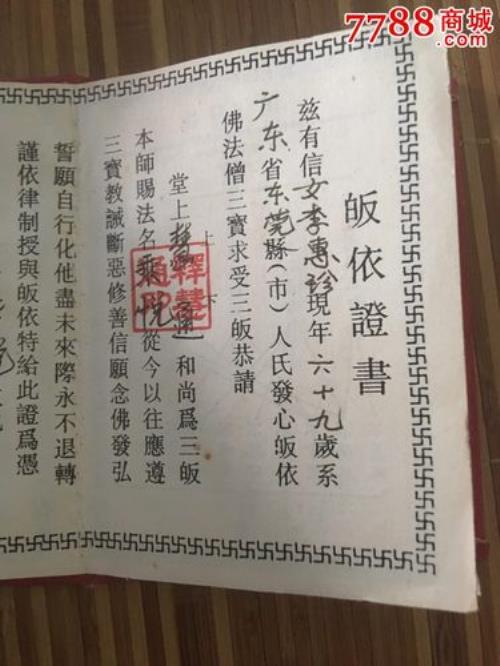 7788商城
.com
皈依證書
兹有信女李惠珍現年六十九歲系
广东省东莞縣(市)人氏發心皈依
佛法僧三寶求受三皈恭請
上 下
堂上 和尚爲三皈
本師賜法名 悅從今以往應遵
三寶教誡斷惡修善信願念佛發弘
誓願自行化他盡未來際永不退轉
謹依律制授與皈依特給此證爲憑
釋慧通印